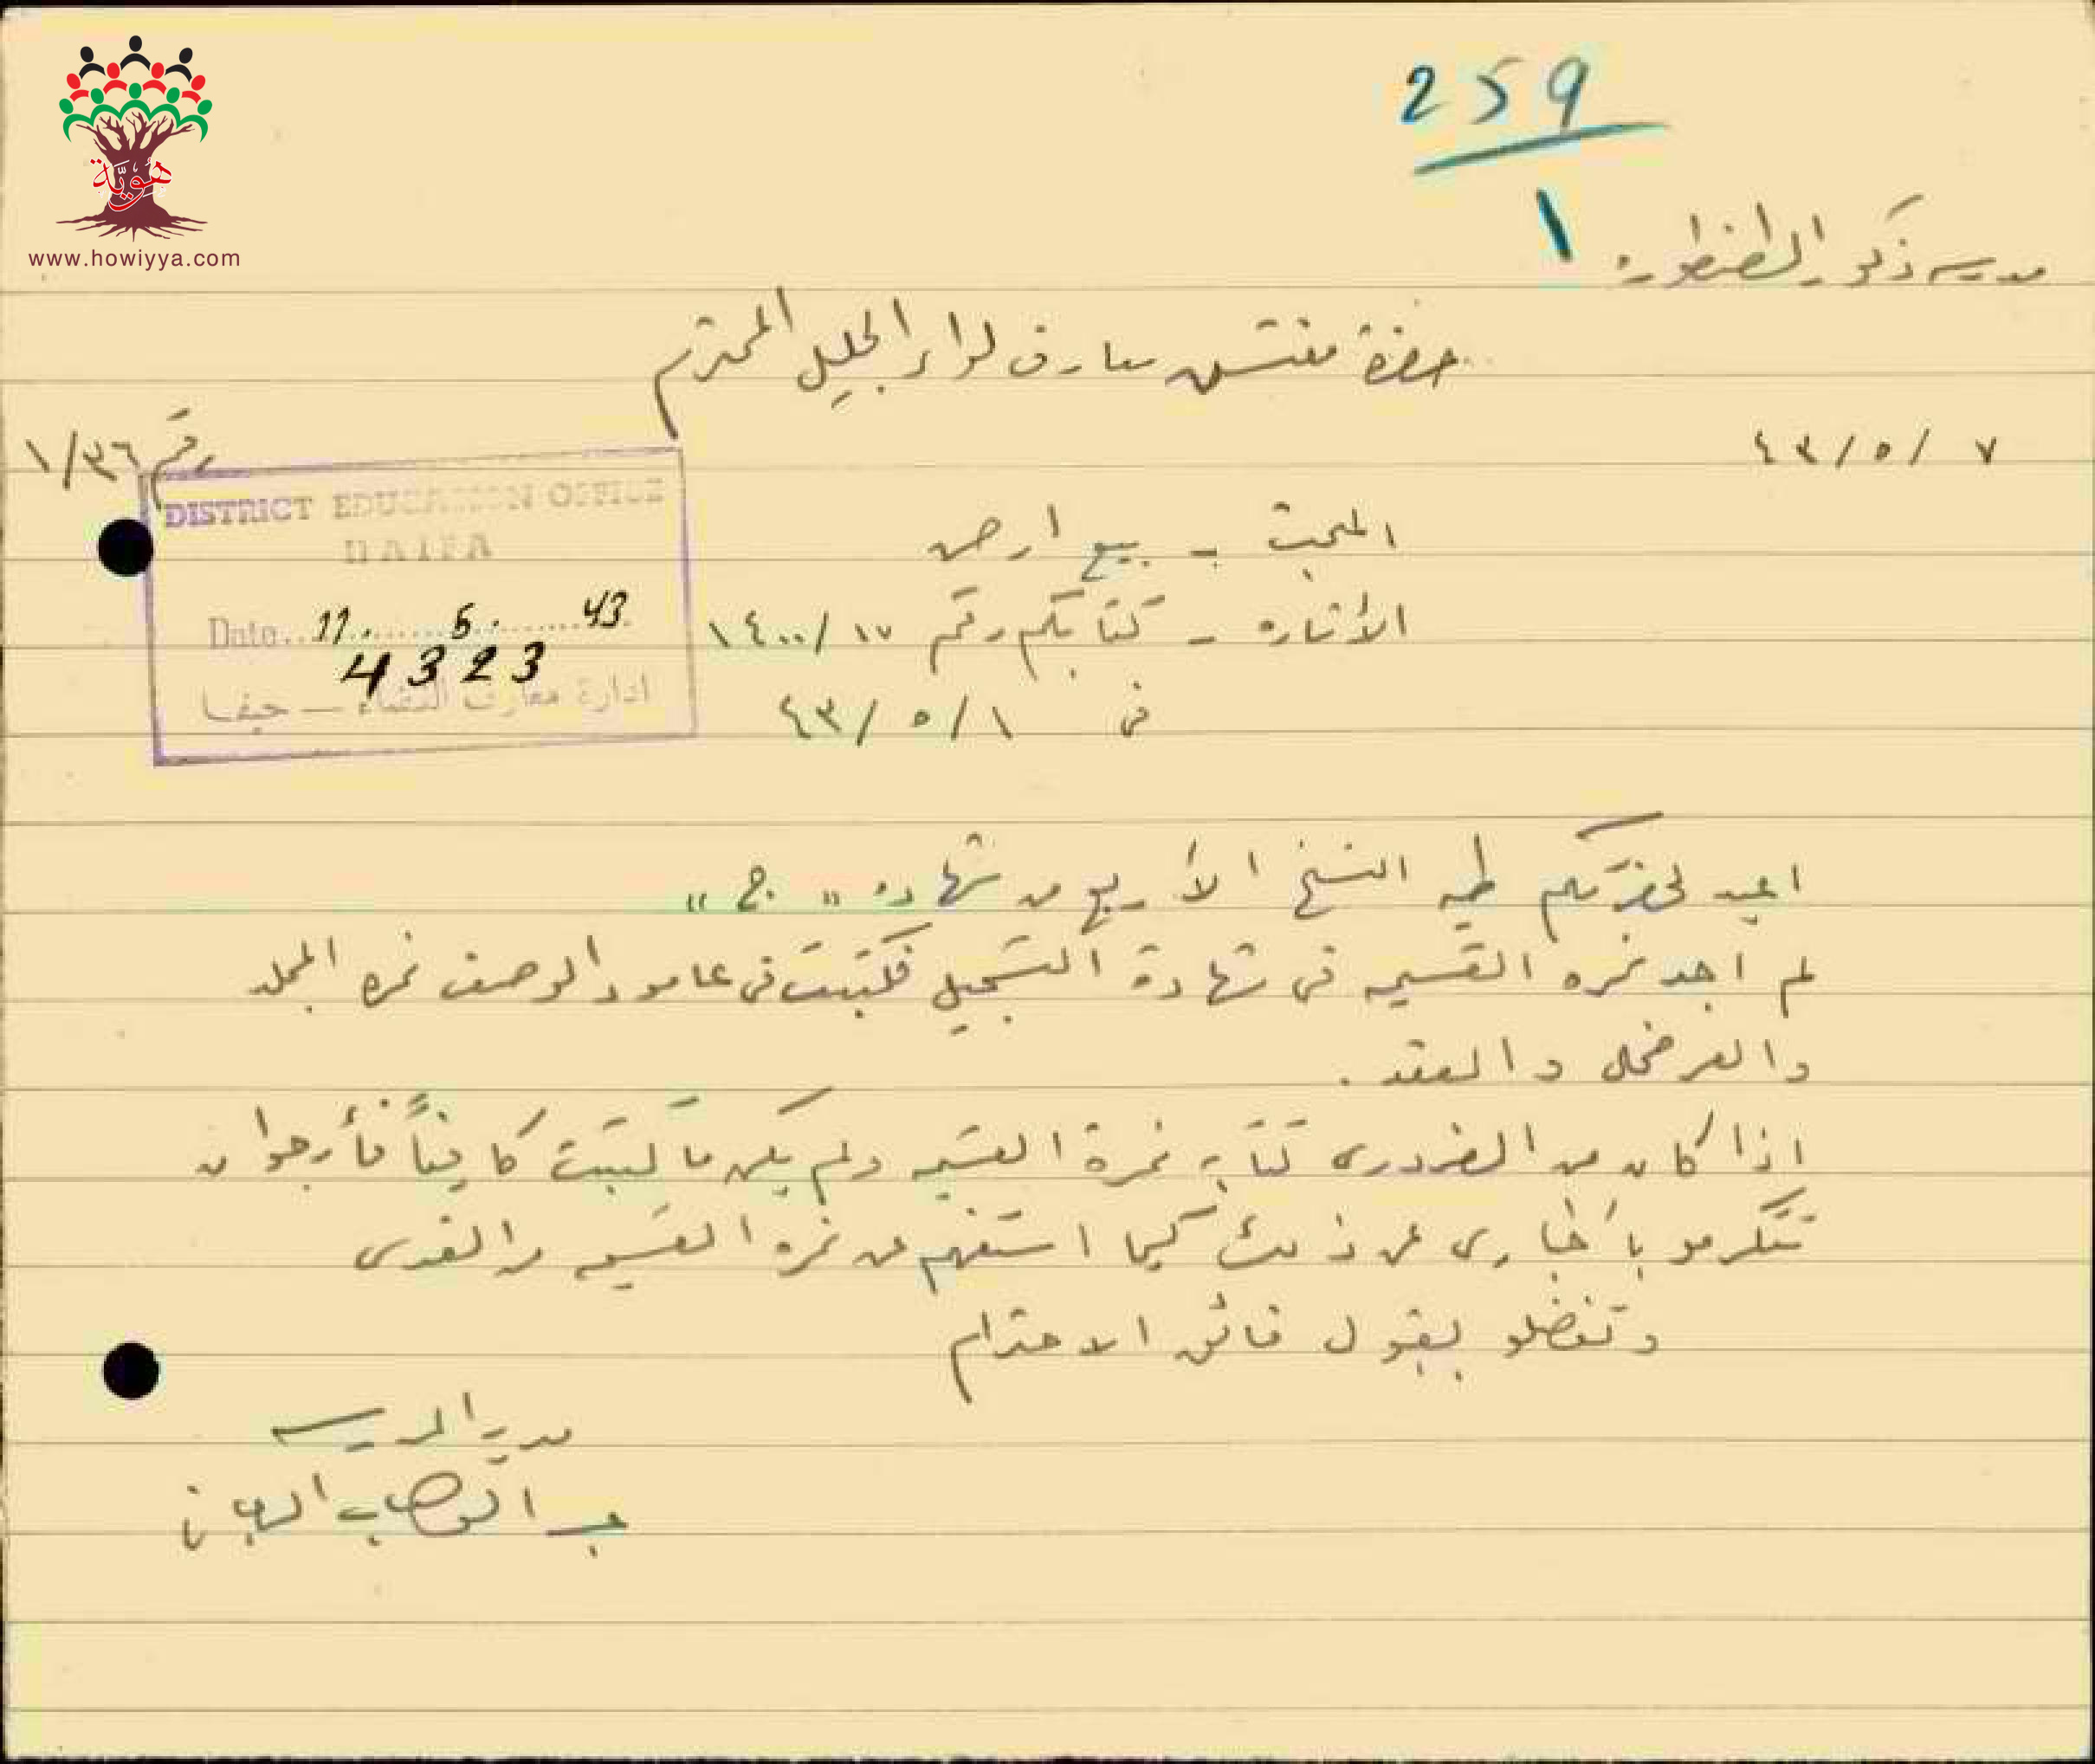 259
١
هوية
www.howiyya.com
مدرسة ذكور الطنطورة
حضرة مفتش معارف لواء الجليل المحترم
٧ / ٥ / ٤٣
رقم ١/٣٦
DISTRICT EDUCATION OFFICE
HAIFA
Date 11. 5. 43
4323
ادارة معارف القضاء — حيفا
المبحث - بيع ارض
الأشارة - كتابكم رقم ١٧ / ١٤٠٠
في ١ / ٥ / ٤٣
اعيد لحضرتكم طيه النسخ الأربع من شهادة " ج "
لم اجد نمره القسيمه في شهادة التسجيل فكتبت في عامود الوصف نمره المجلد
والعرضحال والعقد .
اذا كان من الضروري كتابة نمرة القسيمه ولم يكن ما كتبت كافيًا فأرجو ان
تتكرمو بأخباري عن ذلك كيما استفهم عن نمره القسيمه
وتفضلو بقبول فائق الاحترام
مدير المدرسه
عبد الوهاب